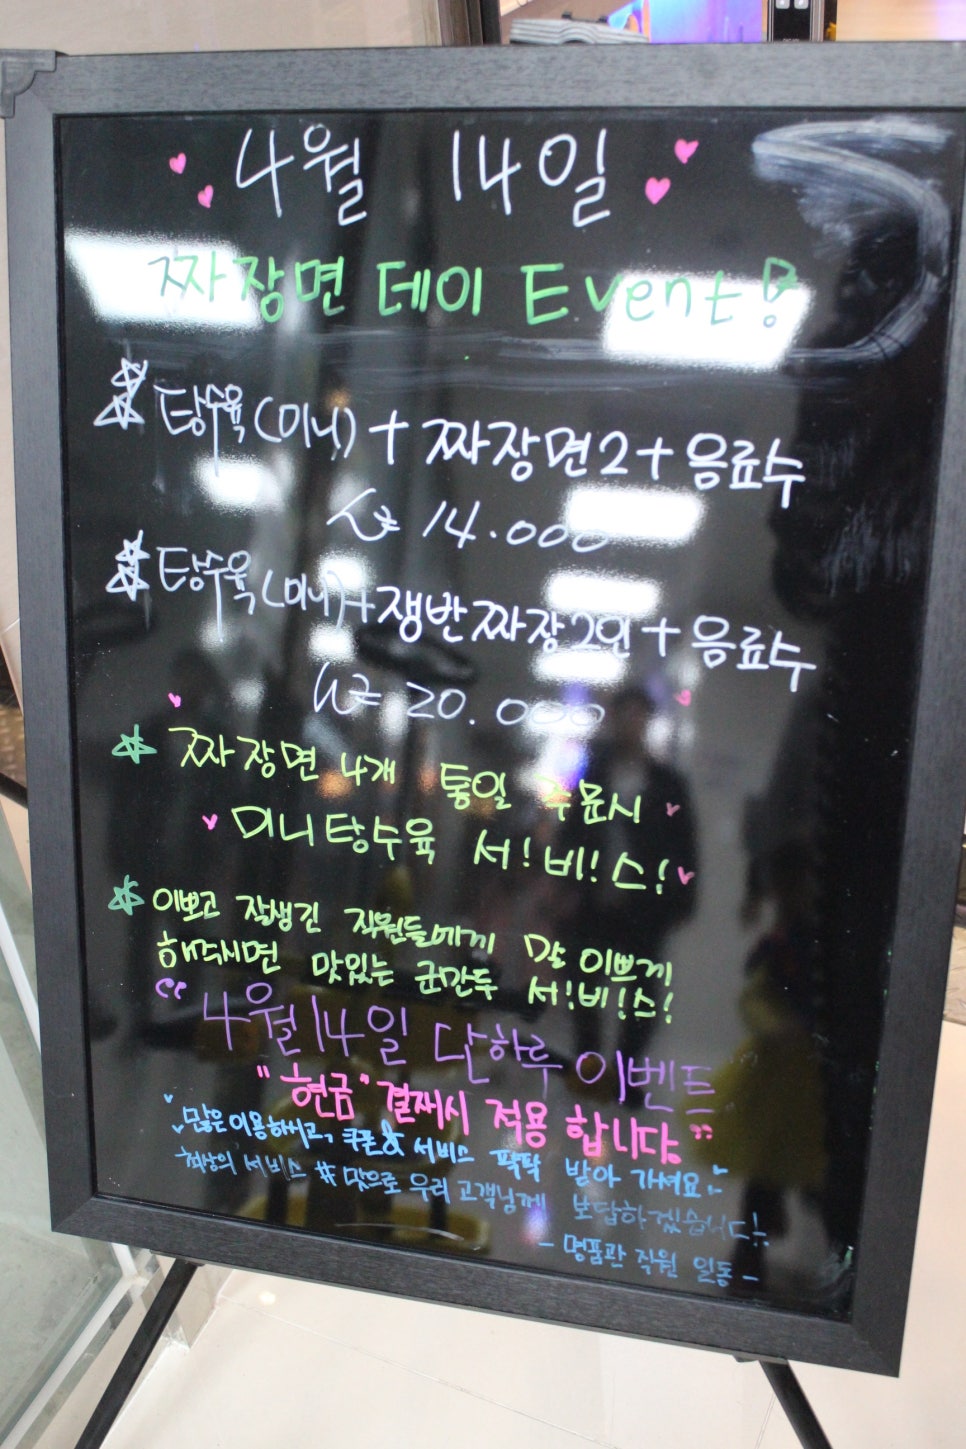 4월 14일
짜장면 데이 Event!
탕수육(미니)+짜장면2+음료수
14.000
탕수육(미니)+쟁반짜장2인+음료수
20.000
짜장면 4개 통일 주문시
미니탕수육 서!비!스!
이쁘고 잘생긴 직원들에게 말 이쁘게
해주시면 맛있는 군만두 서!비!스!
"4월14일 단하루 이벤트
"현금" 결재시 적용 합니다."
많은이용하시고, 쿠폰& 서비스 팍팍 받아 가셔요
최상의 서비스 #맛으로 우리 고객님께 보답하겠습니다!
- 명품관 직원 일동 -